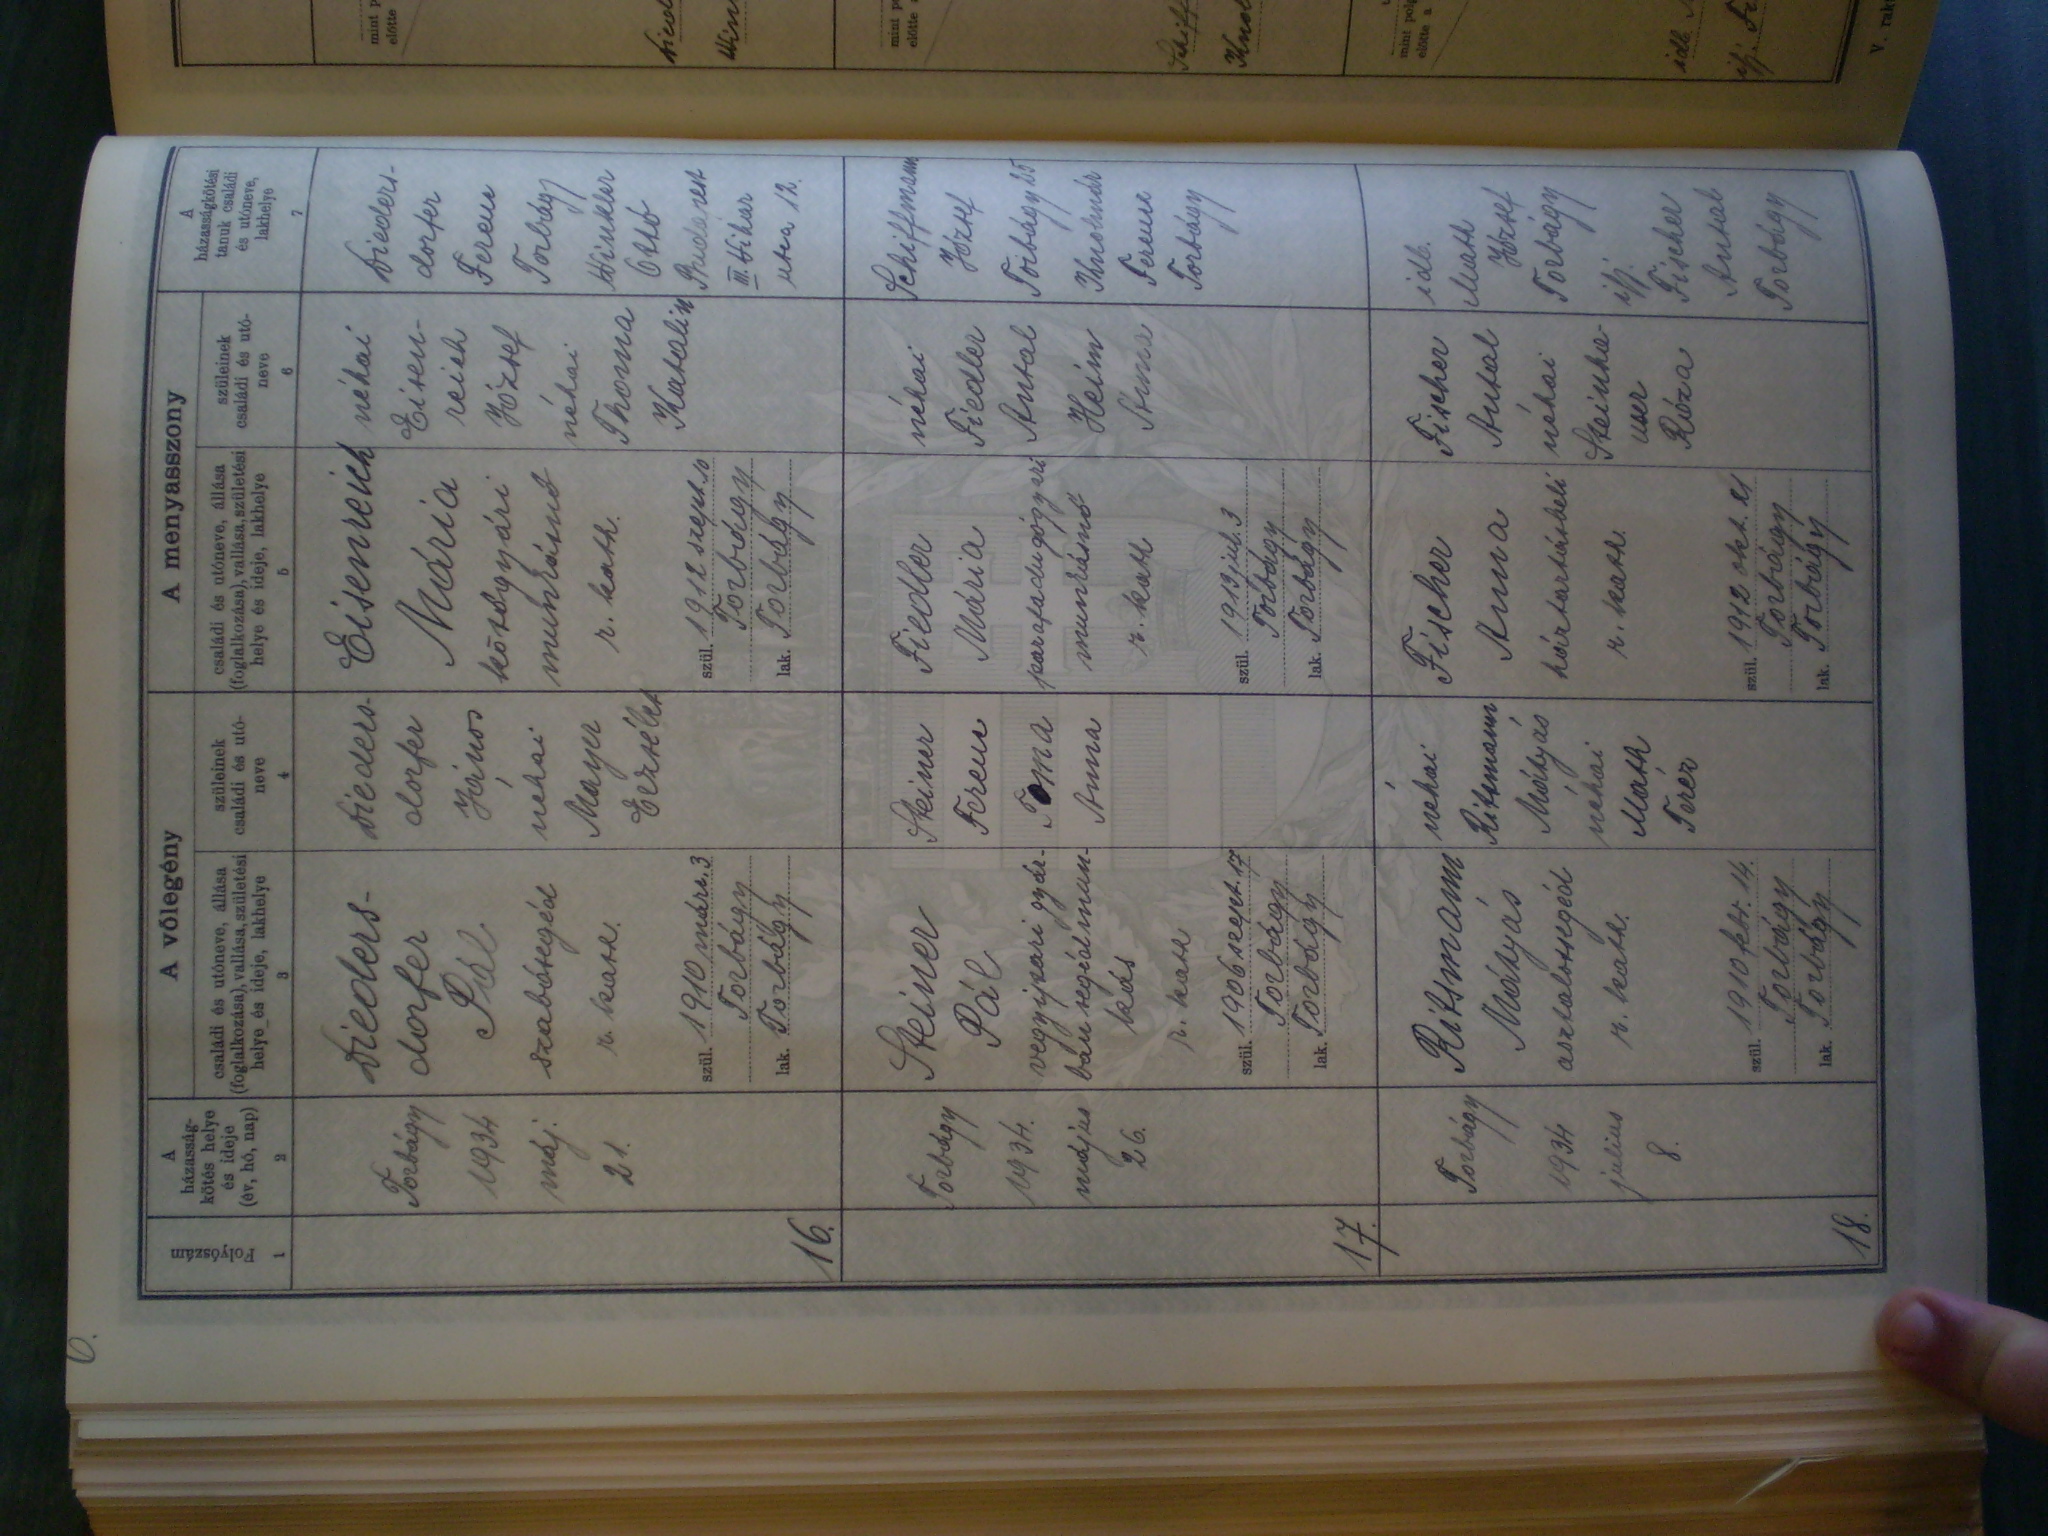 6.
Folyószám
1
A
házasság-
kötés helye
és ideje
(év, hó, nap)
2
A vőlegény
családi és utóneve, állása
(foglalkozása), vallása, születési
helye és ideje, lakhelye
3
szüleinek
családi és utó-
neve
4
A menyasszony
családi és utóneve, állása
(foglalkozása), vallása, születési
helye és ideje, lakhelye
5
szüleinek
családi és utó-
neve
6
A
házasságkötési
tanuk családi
és utóneve,
lakhelye
7
16.
Torbágy
1934
máj.
21.
Dieders-
dorfer
Pál
szabósegéd
r. kath.
szül. 1910 márc. 3
Torbágy
lak. Torbágy
Dieders-
dorfer
János
néhai
Mayer
Erzsébet
Eisenreich
Mária
kötségyári
munkásnő
r. kath.
szül. 1912 szept. 10
Torbágy
lak. Torbágy
néhai
Eisen-
reich
József
néhai
Thoma
Katalin
Dieders-
dorfer
Ferenc
Torbágy
Winkler
Ottó
Budapest
III. Bihar
utca 12.
17.
Torbágy
1934.
május
26.
Steiner
Pál
vegyipari gyár-
ban segédmun-
kás
r. kath
szül. 1906 szept. 17
Torbágy
lak. Torbágy
Steiner
Ferenc
Toma
Anna
Fiedler
Mária
parafadugógyári
munkásnő
r. kath
szül. 1913 jul. 3
Torbágy
lak. Torbágy
néhai
Fiedler
Antal
Heim
Anna
Schiffmann
József
Torbágy 25
Ferenc
Torbágy
18.
Torbágy
1934
július
8.
Ritsmann
Mátyás
asztalossegéd
r. kath.
szül. 1910 febr. 14.
Torbágy
lak. Torbágy
néhai
Ritsmann
Mátyás
néhai
Math
Teréz
Fischer
Anna
háztartásbeli
r. kath.
szül. 1912 okt. 21
Torbágy
lak. Torbágy
Fischer
Antal
néhai
Steinha-
user
Róza
idb.
Math
József
Torbágy
ifj.
Fischer
Antal
Torbágy
mint
előtte a
mint
előtte a
mint
előtte a
idb.
ifj.
V.